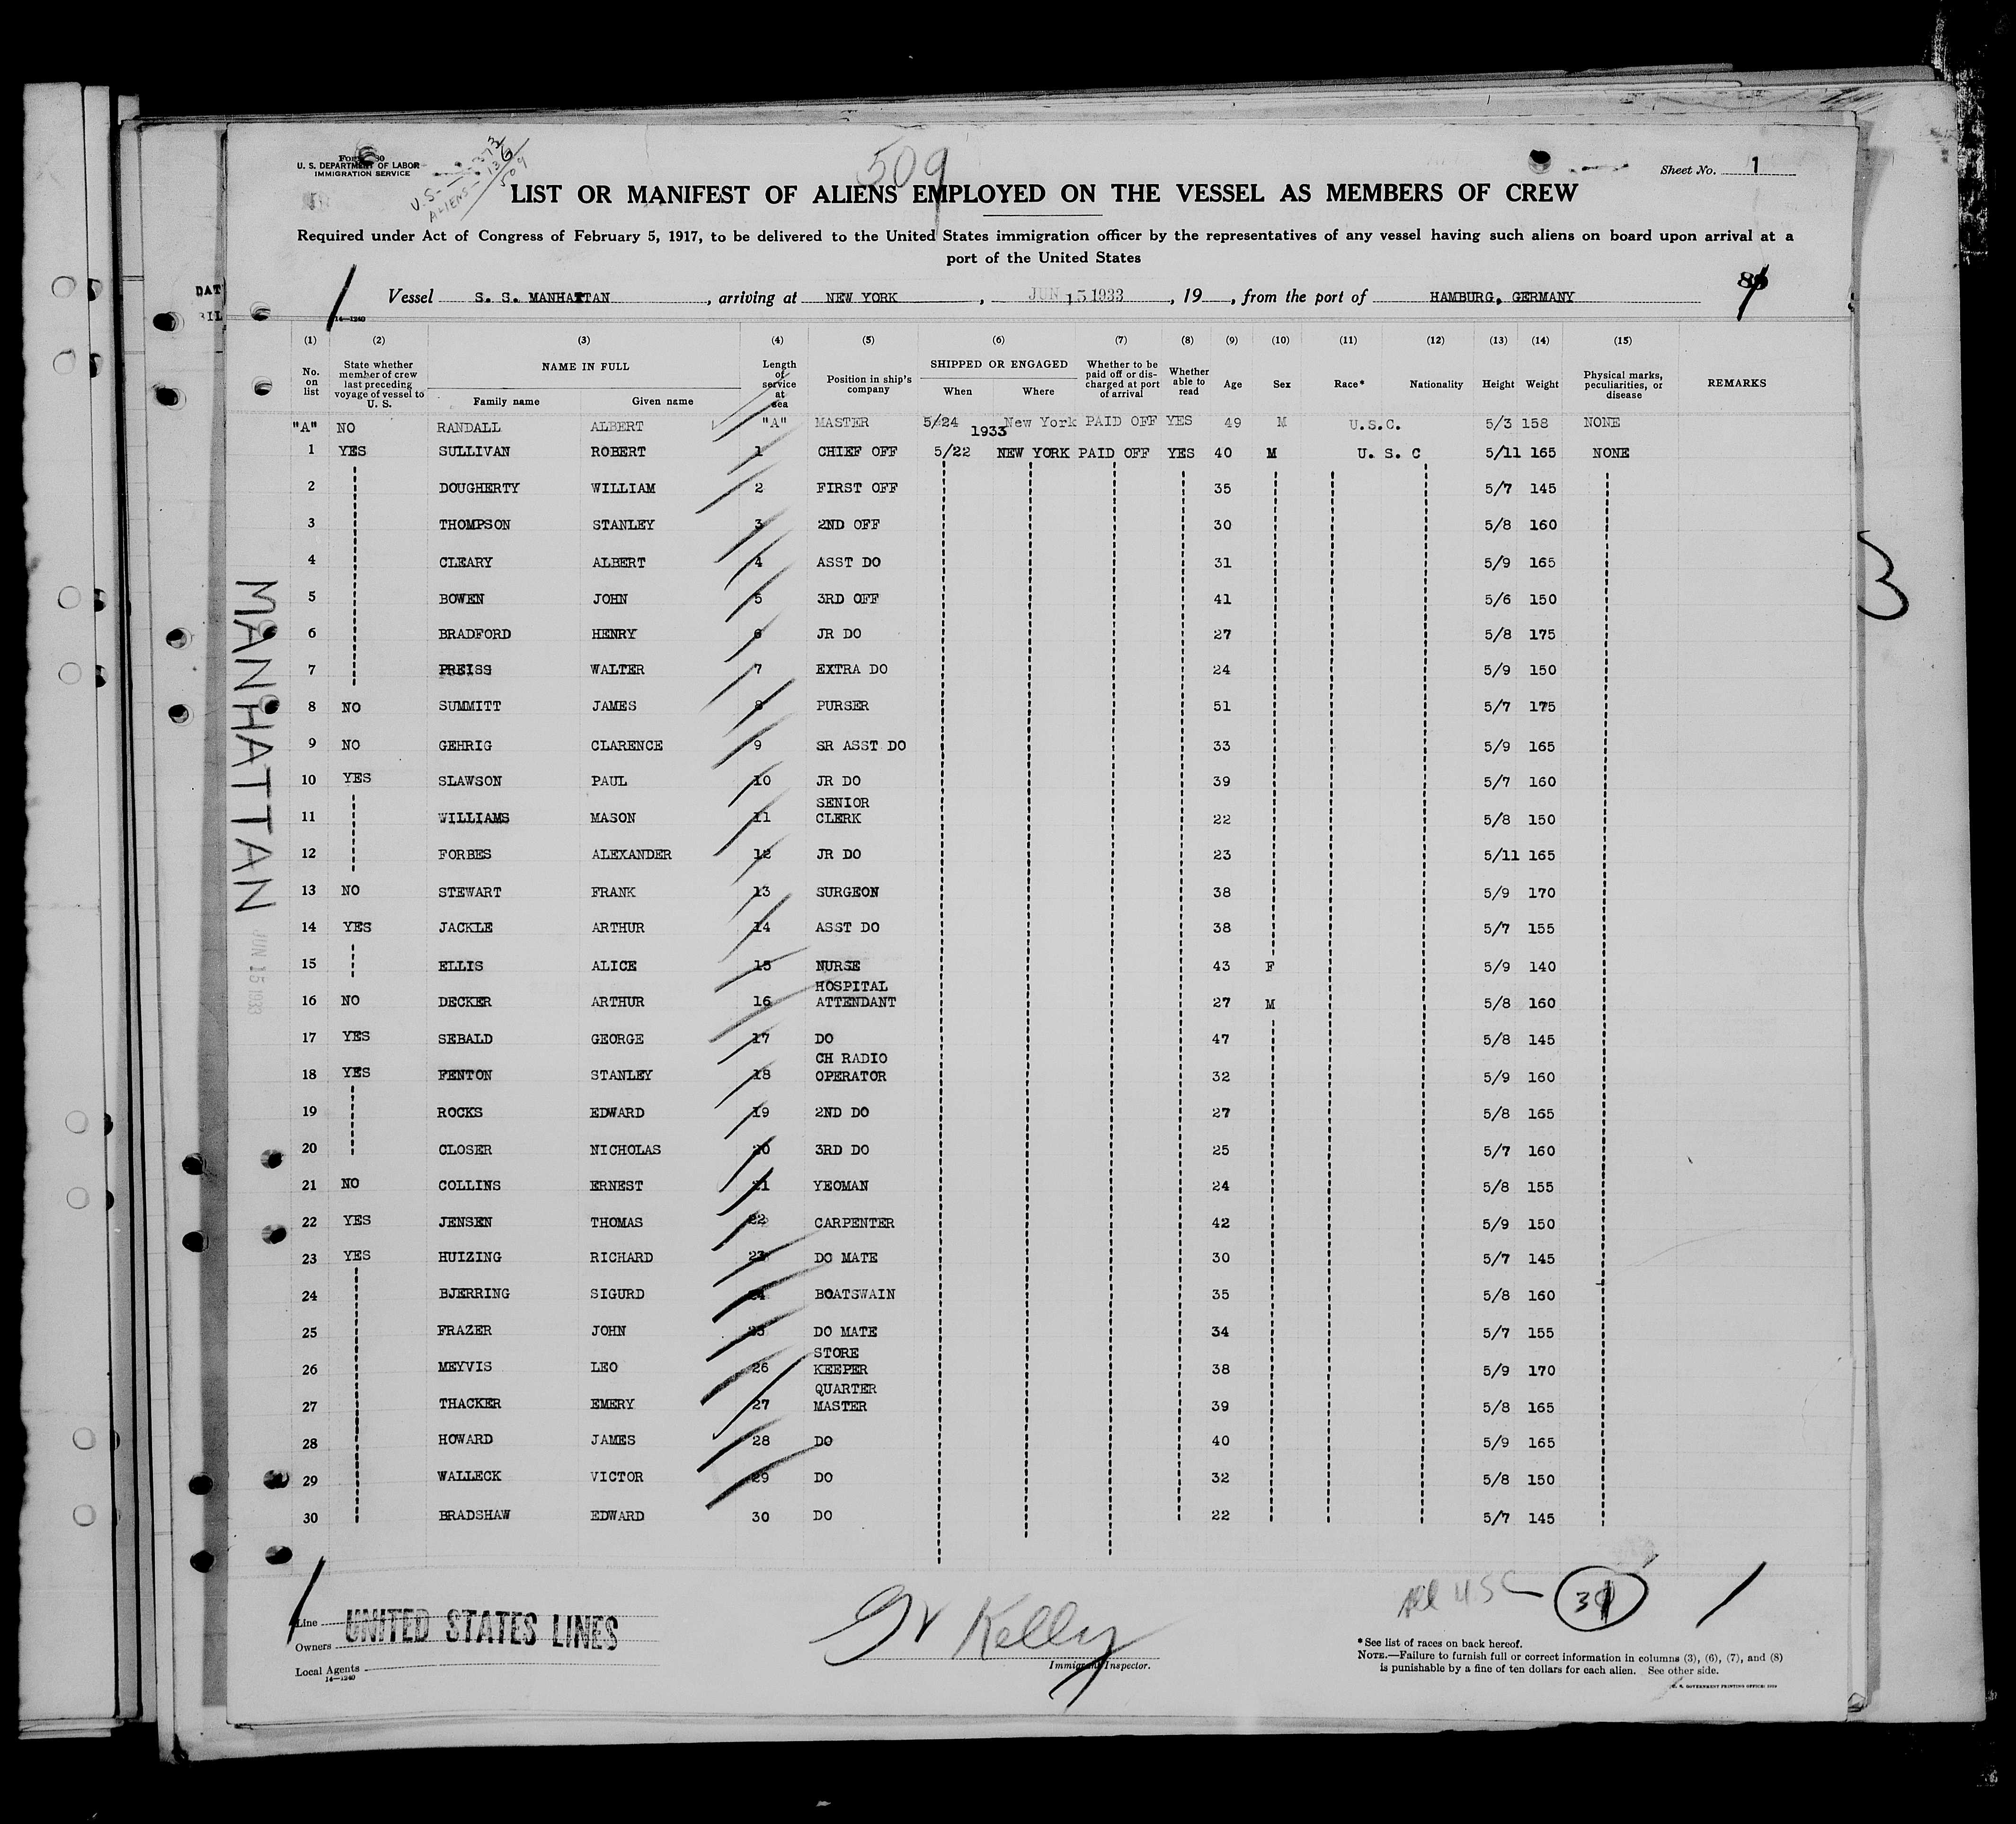 U. S. DEPARTMENT OF LABOR
IMMIGRATION SERVICE
U.S. - 373
ALIENS - 136
509
509
Sheet No. 1
LIST OR MANIFEST OF ALIENS EMPLOYED ON THE VESSEL AS MEMBERS OF CREW
Required under Act of Congress of February 5, 1917, to be delivered to the United States immigration officer by the representatives of any vessel having such aliens on board upon arrival at a
port of the United States
Vessel S. S. MANHATTAN, arriving at NEW YORK, JUN 15 1933, 19, from the port of HAMBURG, GERMANY
14—1240
(1) (2) (3) (4) (5) (6) (7) (8) (9) (10) (11) (12) (13) (14) (15)
No. on list
State whether member of crew last preceding voyage of vessel to U. S.
NAME IN FULL
Family name Given name
Length of service at sea
Position in ship's company
SHIPPED OR ENGAGED
When Where
Whether to be paid off or discharged at port of arrival
Whether able to read
Age Sex Race* Nationality Height Weight
Physical marks, peculiarities, or disease
REMARKS
"A" NO RANDALL ALBERT "A" MASTER 5/24 New York PAID OFF YES 49 M U.S.C. 5/3 158 NONE
1933
1 YES SULLIVAN ROBERT 1 CHIEF OFF 5/22 NEW YORK PAID OFF YES 40 M U. S. C 5/11 165 NONE
2 DOUGHERTY WILLIAM 2 FIRST OFF 35 5/7 145
3 THOMPSON STANLEY 3 2ND OFF 30 5/8 160
4 CLEARY ALBERT 4 ASST DO 31 5/9 165
5 BOWEN JOHN 5 3RD OFF 41 5/6 150
6 BRADFORD HENRY 6 JR DO 27 5/8 175
7 PREISS WALTER 7 EXTRA DO 24 5/9 150
8 NO SUMMITT JAMES 8 PURSER 51 5/7 175
9 NO GEHRIG CLARENCE 9 SR ASST DO 33 5/9 165
10 YES SLAWSON PAUL 10 JR DO 39 5/7 160
11 WILLIAMS MASON 11 SENIOR CLERK 22 5/8 150
12 FORBES ALEXANDER 12 JR DO 23 5/11 165
13 NO STEWART FRANK 13 SURGEON 38 5/9 170
14 YES JACKLE ARTHUR 14 ASST DO 38 5/7 155
15 ELLIS ALICE 15 NURSE 43 F 5/9 140
16 NO DECKER ARTHUR 16 HOSPITAL ATTENDANT 27 M 5/8 160
17 YES SEBALD GEORGE 17 DO 47 5/8 145
18 YES FENTON STANLEY 18 CH RADIO OPERATOR 32 5/9 160
19 ROCKS EDWARD 19 2ND DO 27 5/8 165
20 CLOSER NICHOLAS 20 3RD DO 25 5/7 160
21 NO COLLINS ERNEST 21 YEOMAN 24 5/8 155
22 YES JENSEN THOMAS 22 CARPENTER 42 5/9 150
23 YES HUIZING RICHARD 23 DO MATE 30 5/7 145
24 BJERRING SIGURD 24 BOATSWAIN 35 5/8 160
25 FRAZER JOHN 25 DO MATE 34 5/7 155
26 MEYVIS LEO 26 STORE KEEPER 38 5/9 170
27 THACKER EMERY 27 QUARTER MASTER 39 5/8 165
28 HOWARD JAMES 28 DO 40 5/9 165
29 WALLECK VICTOR 29 DO 32 5/8 150
30 BRADSHAW EDWARD 30 DO 22 5/7 145
MANHATTAN
JUN 15 1933
3
All USC 31
Line
Owners UNITED STATES LINES
Local Agents
14—1240
Kelly
Immigrant Inspector.
*See list of races on back hereof.
NOTE.—Failure to furnish full or correct information in columns (3), (6), (7), and (8)
is punishable by a fine of ten dollars for each alien. See other side.